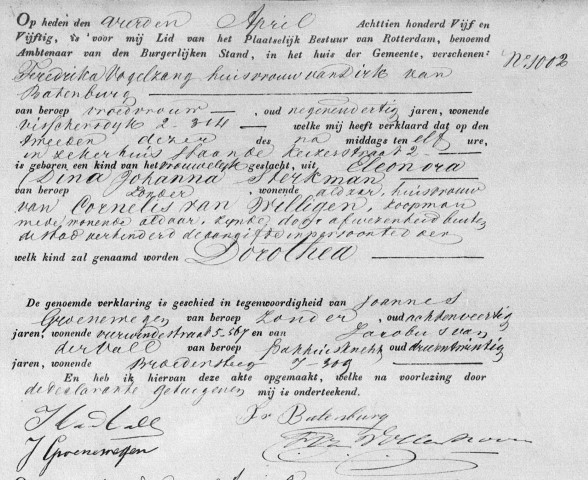 Op heden den vierden April Achttien honderd Vijf en
Vijftig, is voor mij Lid van het Plaatselijk Bestuur van Rotterdam, benoemd
Ambtenaar van den Burgerlijken Stand, in het huis der Gemeente, verschenen:
No 1002
Fredrika Vogelzang huisvrouw van Dirk van
Batenburg
van beroep vroedvrouw, oud negenendertig jaren, wonende
Visschersdijk 2-314 welke mij heeft verklaard dat op den
tweeden dezer des na middags ten elf ure,
in zeker huis staande Keizerstraat 2-
is geboren een kind van het vrouwelijk geslacht, uit Eleonora
Dina Johanna Sterkman
van beroep zonder, wonende aldaar, huisvrouw
van Cornelis van Willigen, koopman
mede wonende aldaar, zynde door afwezenheid buiten
de stad verhinderd de aangifte in persoon te doen
welk kind zal genaamd worden Dorothea
De genoemde verklaring is geschied in tegenwoordigheid van Joannes
Groenewegen van beroep zonder, oud achtenveertig
jaren, wonende 5-567 en van Jacobus van
der Vall van beroep oud drieentwintig
jaren, wonende
En heb ik hiervan deze akte opgemaakt, welke na voorlezing door
de declarante getuigen en mij is onderteekend.
Fr Batenburg
J Groenewegen